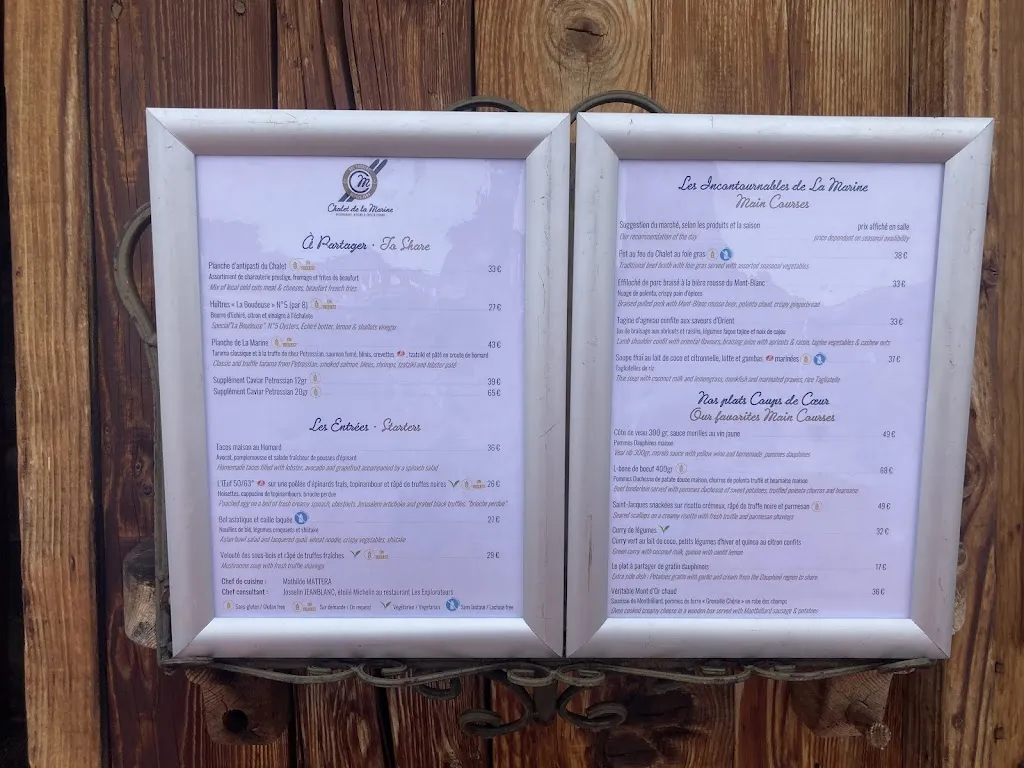 M
Chalet de la Marine
À Partager · To Share
Planche d'antipasti du Chalet 33 €
Assortiment de charcuterie prestige, fromages et frites de beaufort
Mix of local cold cuts meat & cheeses, beaufort french fries
Huîtres « La Boudeuse » N°5 (par 8) 27 €
Beurre d'Echiré, citron et vinaigre à l'échalote
Special "La Boudeuse" N°5 Oysters, Echiré butter, lemon & shallots vinegar
Planche de La Marine 43 €
Tarama classique et à la truffe de chez Petrossian, saumon fumé, blinis, crevettes, tzatziki et pâté en croute de homard
Classic and truffle tarama from Petrossian, smoked salmon, blinis, shrimps, tzatziki and lobster paté
Supplément Caviar Petrossian 12gr 39 €
Supplément Caviar Petrossian 20gr 65 €
Les Entrées · Starters
Tacos maison au Homard 36 €
Avocat, pamplemousse et salade fraîcheur de pousses d'épinard
Homemade tacos filled with lobster, avocado and grapefruit accompanied by a spinach salad
L'Œuf 50/63° sur une poêlée d'épinards frais, topinambour et râpé de truffes noires 28 €
Noisettes, cappucino de topinambours, brioche perdue
Poached egg on a bed of fresh creamy spinach, chestnuts, Jerusalem artichoke and grated black truffles, "brioche perdue"
Bol asiatique et caille laquée 27 €
Nouilles de blé, légumes croquants et shiitake
Asian bowl salad and lacquered quail, wheat noodle, crispy vegetables, shiitake
Velouté des sous-bois et râpé de truffes fraîches 29 €
Mushrooms soup with fresh truffle shavings
Chef de cuisine : Mathilde MATTERA
Chef consultant : Josselin JEANBLANC, étoilé Michelin au restaurant Les Explorateurs
Sans gluten / Gluten free Sur demande / On request Végétarien / Vegetarian Sans lactose / Lactose free
Les Incontournables de La Marine
Main Courses
Suggestion du marché, selon les produits et la saison prix affiché en salle
Our recommendation of the day price dependant on seasonal availibility
Pot au feu du Chalet au foie gras 38 €
Traditional beef broth with foie gras served with assorted seasonal vegetables
Effiloché de porc braisé à la bière mousse du Mont-Blanc 33 €
Nuage de polenta, crispy pain d'épices
Braised pulled pork with Mont-Blanc mousse beer, polenta cloud, crispy gingerbread
Tagine d'agneau confite aux saveurs d'Orient 33 €
Jus de braisage aux abricots et raisins, légumes façon tajine et noix de cajou
Lamb shoulder confit with oriental flavours, braising juice with apricots & raisin, tagine vegetables & cashew nuts
Soupe thaï au lait de coco et citronnelle, lotte et gambas marinées 37 €
Tagliatelles de riz
Thai soup with coconut milk and lemongrass, monkfish and marinated prawns, rice Tagliatelle
Nos plats Coups de Cœur
Our favorites Main Courses
Côte de veau 390 gr, sauce morilles au vin jaune 49 €
Pommes Dauphines maison
Veal rib 390gr, morels sauce with yellow wine and homemade pommes dauphines
L-bone de boeuf 400gr 69 €
Pommes Duchesse de patate douce maison, churros de polenta truffé et bearnaise maison
Beef tenderloin served with pommes duchesse of sweet potatoes, truffled polenta churros and bearnaise
Saint-Jacques snackées sur risotto crémeux, râpé de truffe noire et parmesan 49 €
Seared scallops on a creamy risotto with fresh truffle and parmesan shavings
Curry de légumes 32 €
Curry vert au lait de coco, petits légumes d'hiver et quinoa au citron confits
Green curry with coconut milk, quinoa with confit lemon
Le plat à partager de gratin dauphinois 17 €
Extra side dish : Potatoes gratin with garlic and cream from the Dauphiné region to share
Véritable Mont d'Or chaud 36 €
Saucisse de Montbéliard, pommes de terre « Grenaille Chérie » en robe des champs
Oven cooked creamy cheese in a wooden box served with Montbéliard sausage & potatoes